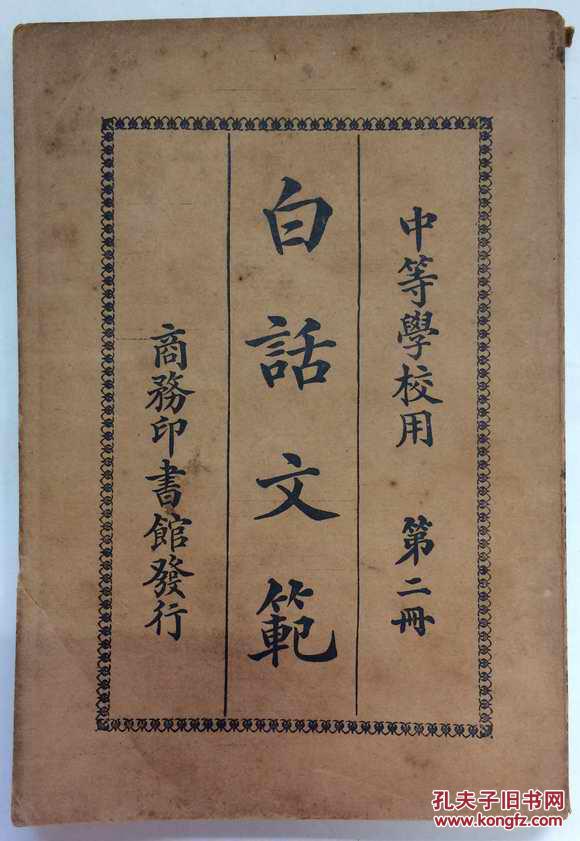 中等學校用 第二冊
白話文範
商務印書館發行
孔夫子旧书网
www.kongfz.com